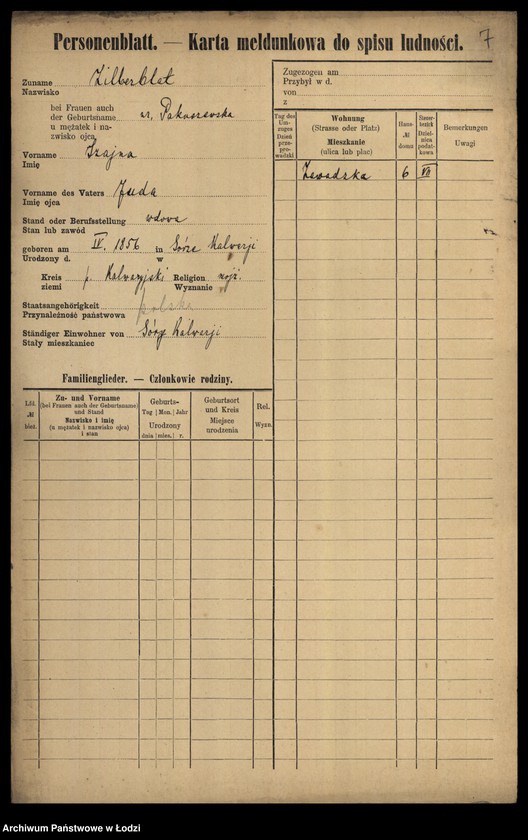 Personenblatt. — Karta meldunkowa do spisu ludności. 7
Zuname Zilberblat
Nazwisko
bei Frauen auch
der Geburtsname
u mężatek i na-
zwisko ojca
Vorname Szajna
Imię
Vorname des Vaters Juda
Imię ojca
Stand oder Berufsstellung wdowa
Stan lub zawód
geboren am IV. 1856 in Górze Kalwerji
Urodzony d. w
Kreis Kalwaryjski Religion mojż.
ziemi Wyznanie
Staatsangehörigkeit polska
Przynależność państwowa
Ständiger Einwohner von Górze Kalwerji
Stały mieszkaniec
Familienglieder. — Członkowie rodziny.
Lfd.
№
bież.
Zu- und Vorname
(bei Frauen auch der Geburtsname)
und Stand
Nazwisko i imię
(u mężatek i nazwisko ojca)
i stan
Geburts-
Tag Mon. Jahr
Urodzony
dnia mies. r.
Geburtsort
und Kreis
Miejsce
urodzenia
Rel.
Wyzn.
Zugezogen am
Przybył w d.
von
z
Tag des
Um-
zuges
Dzień
prze-
pro-
wadzki
Wohnung
(Strasse oder Platz)
Mieszkanie
(ulica lub plac)
Haus-
№
domu
Steuer-
bezirk
Dziel-
nica
podat-
kowa
Bemerkungen
Uwagi
Zawadzka 6 VII
Archiwum Państwowe w Łodzi